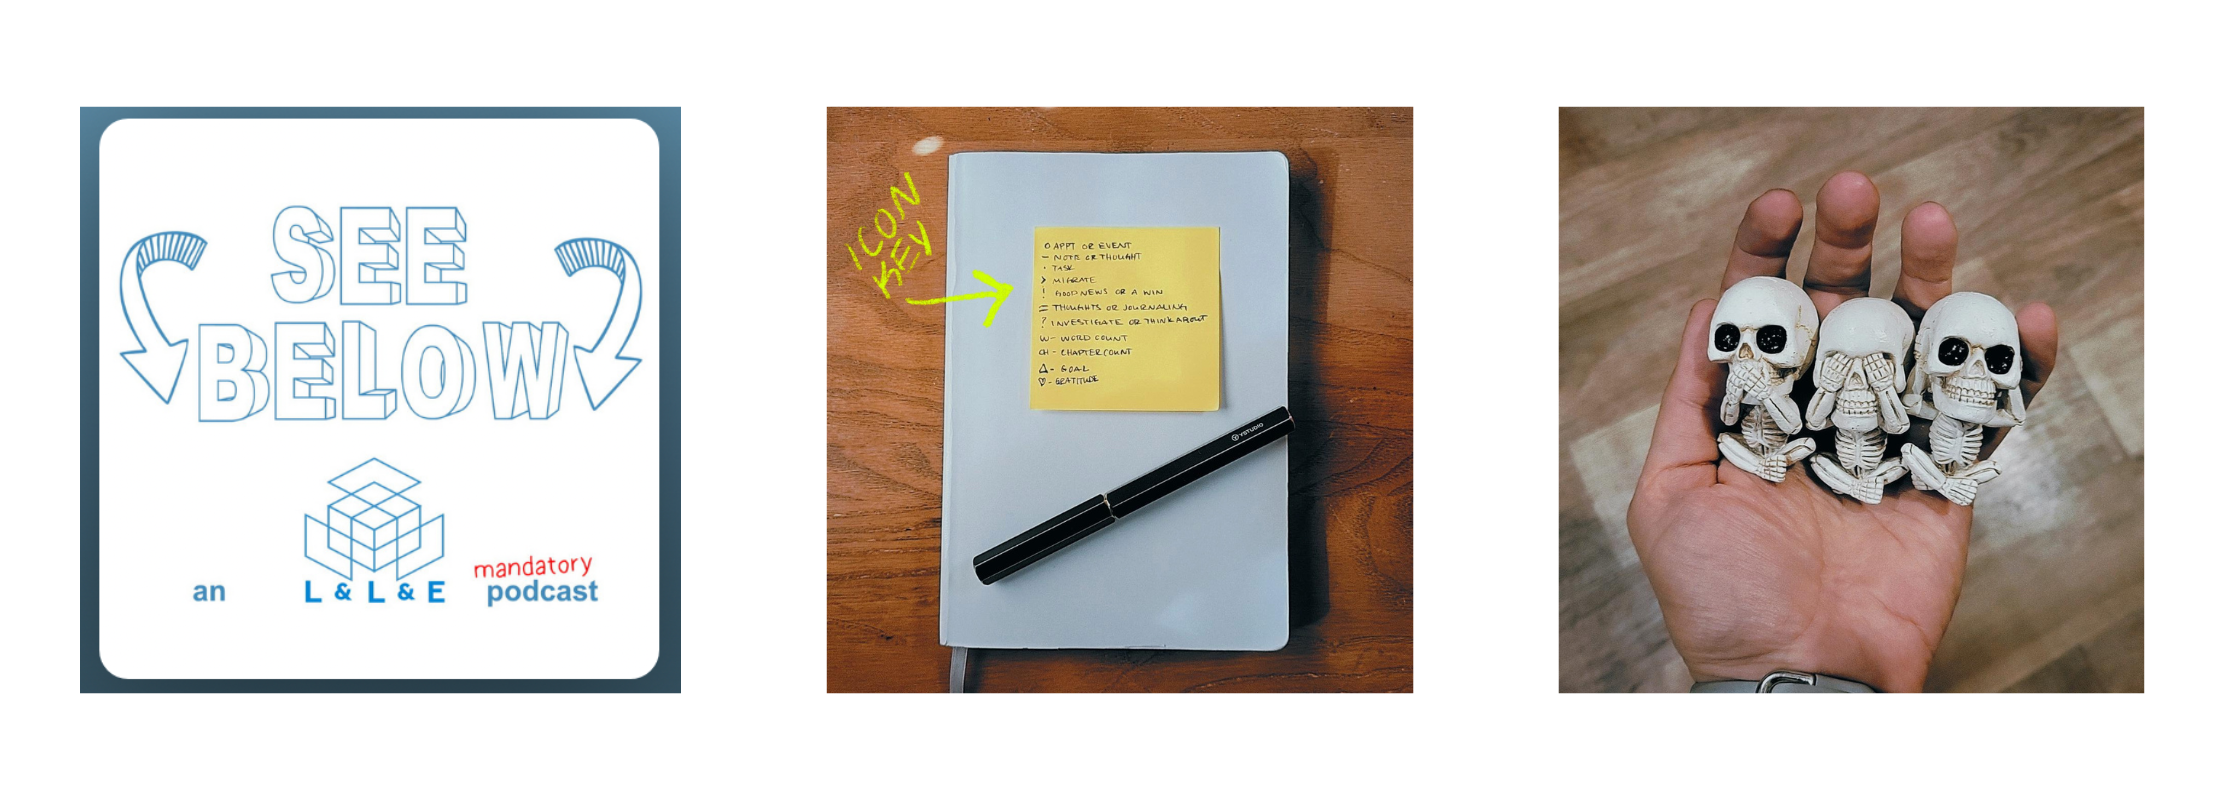 SEE
BELOW
an
L & L & E
mandatory
podcast
ICON
KEY
O APPT OR EVENT
- NOTE OR THOUGHT
· TASK
> MIGRATE
! GOOD NEWS OR A WIN
= THOUGHTS OR JOURNALING
? INVESTIGATE OR THINK ABOUT
W- WORD COUNT
CH- CHAPTER COUNT
△- GOAL
♡- GRATITUDE
YSTUDIO